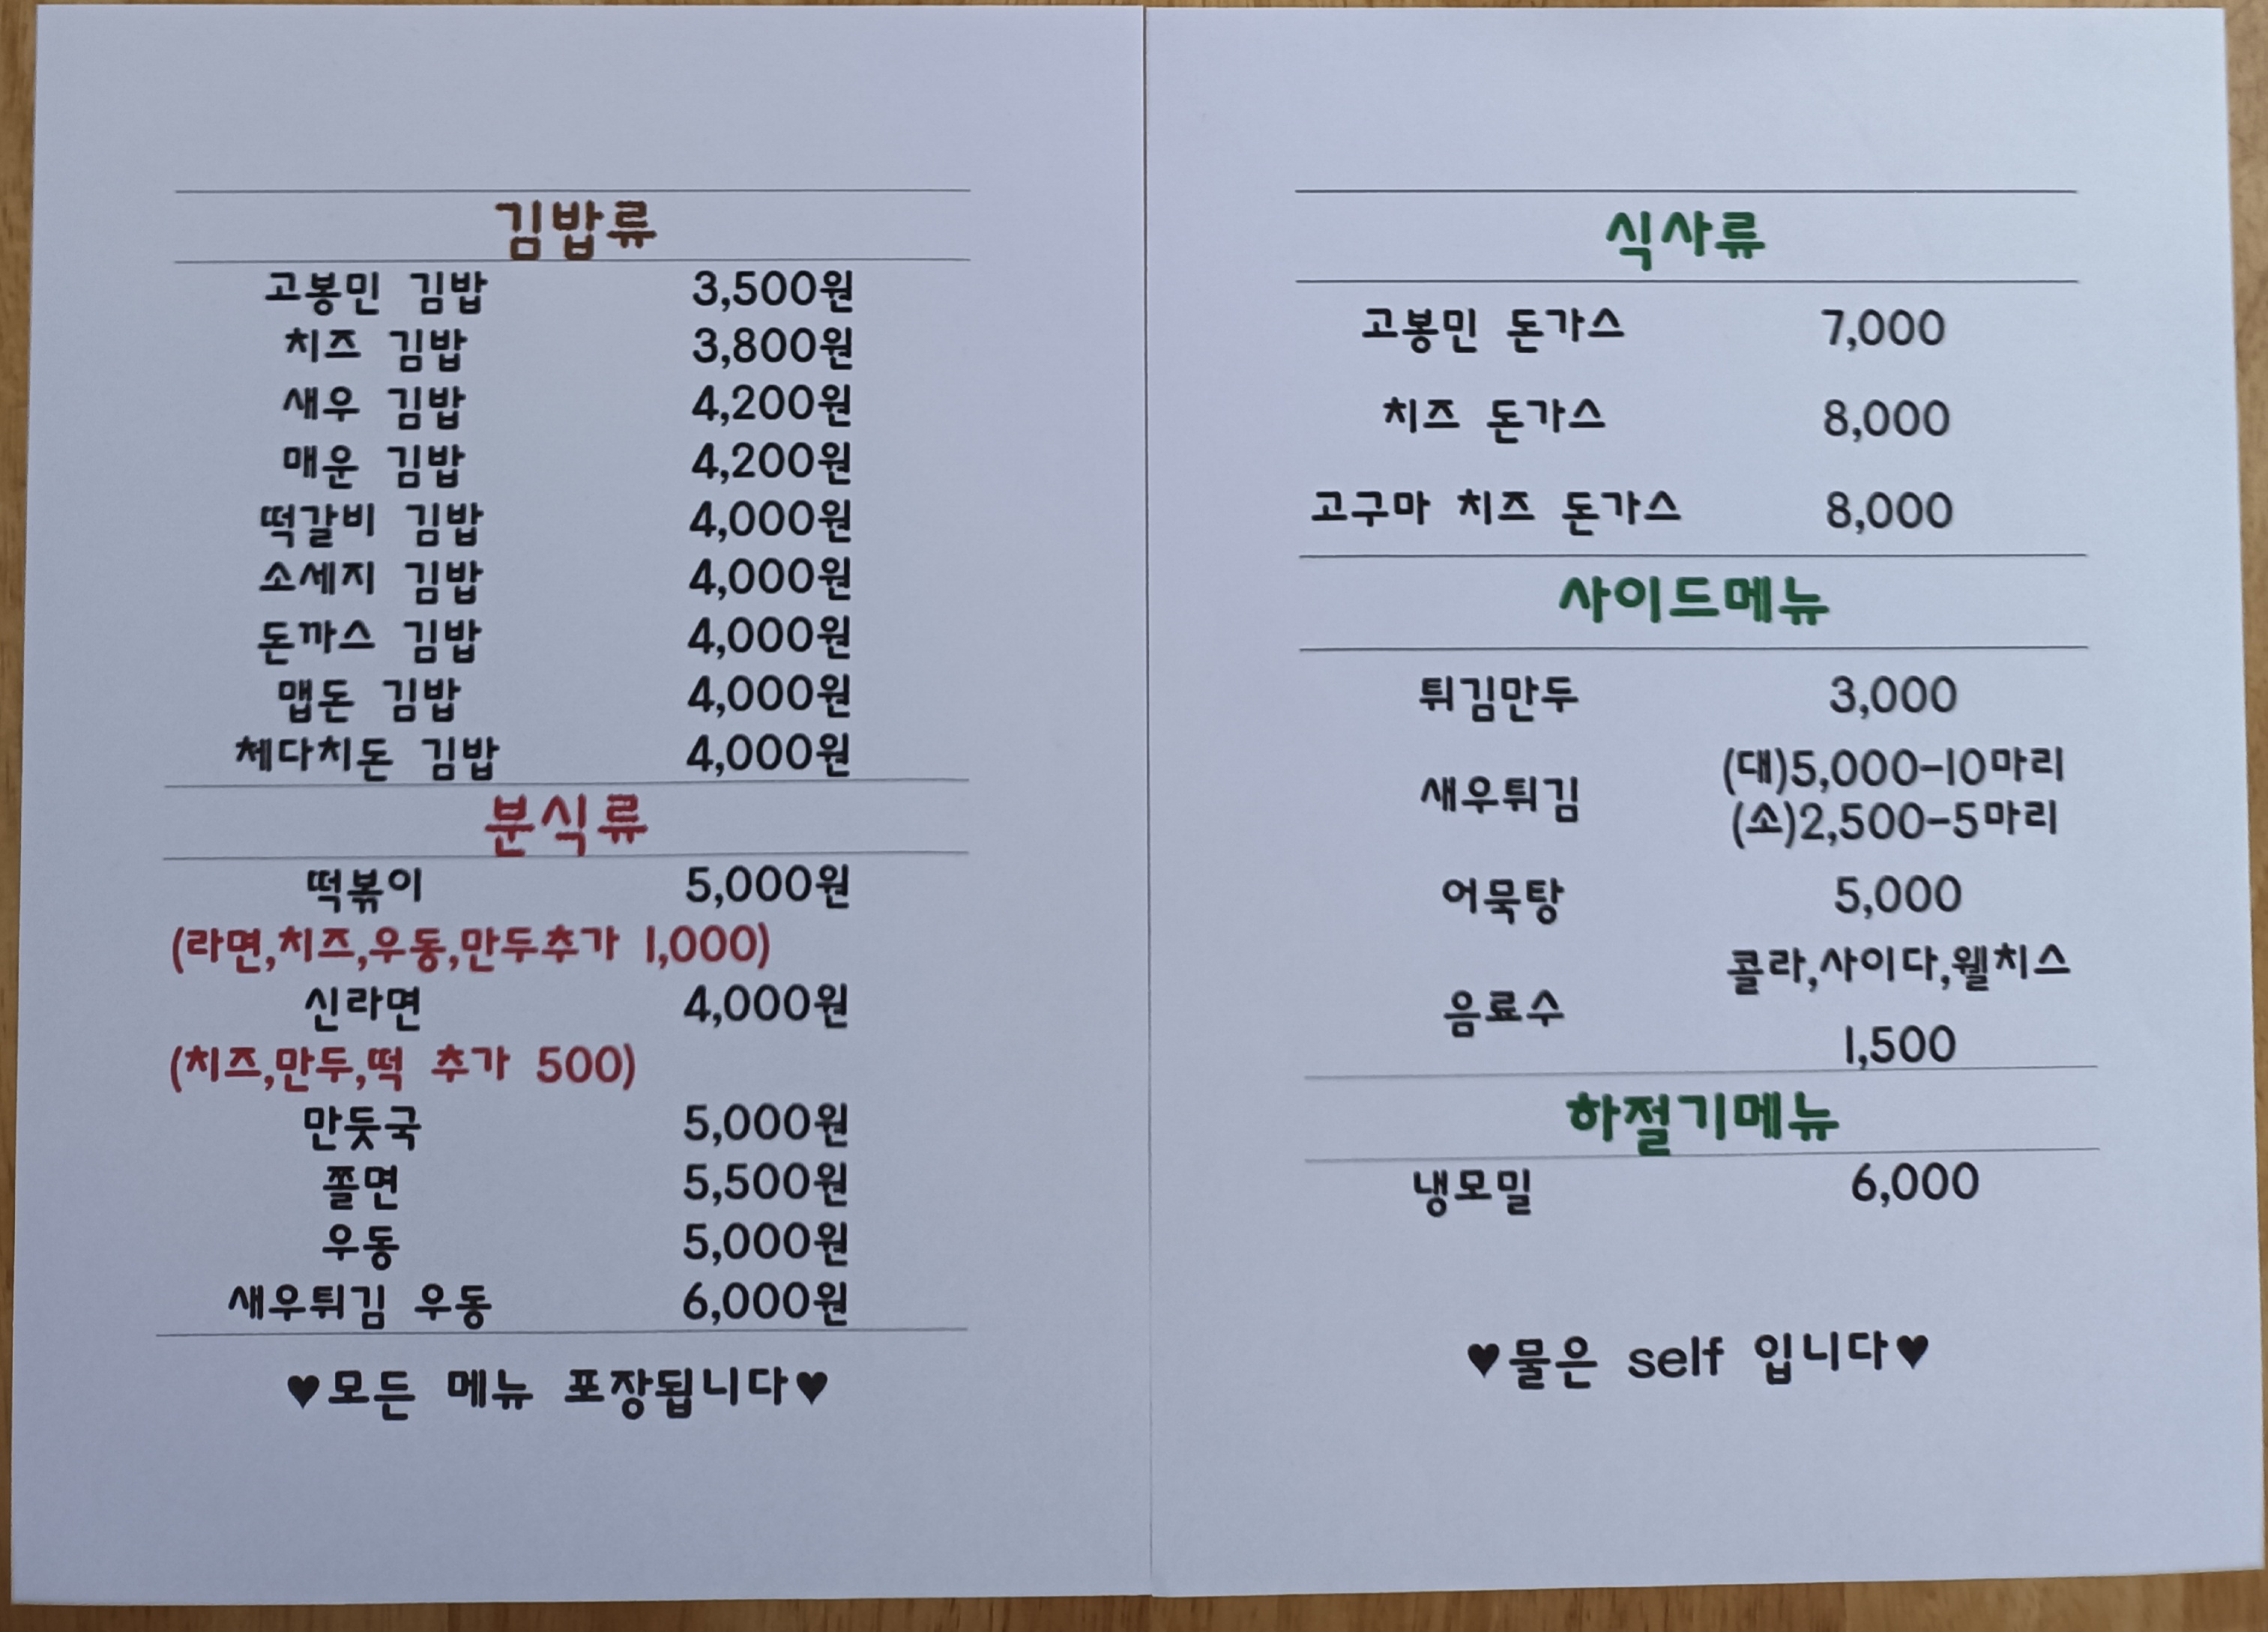 김밥류
고봉민 김밥 3,500원
치즈 김밥 3,800원
새우 김밥 4,200원
매운 김밥 4,200원
떡갈비 김밥 4,000원
소세지 김밥 4,000원
돈까스 김밥 4,000원
맵돈 김밥 4,000원
체다치돈 김밥 4,000원
분식류
떡볶이 5,000원
(라면,치즈,우동,만두추가 1,000)
신라면 4,000원
(치즈,만두,떡 추가 500)
만둣국 5,000원
쫄면 5,500원
우동 5,000원
새우튀김 우동 6,000원
♥모든 메뉴 포장됩니다♥
식사류
고봉민 돈가스 7,000
치즈 돈가스 8,000
고구마 치즈 돈가스 8,000
사이드메뉴
튀김만두 3,000
새우튀김 (대)5,000-10마리
(소)2,500-5마리
어묵탕 5,000
음료수 콜라,사이다,웰치스
1,500
하절기메뉴
냉모밀 6,000
♥물은 self 입니다♥